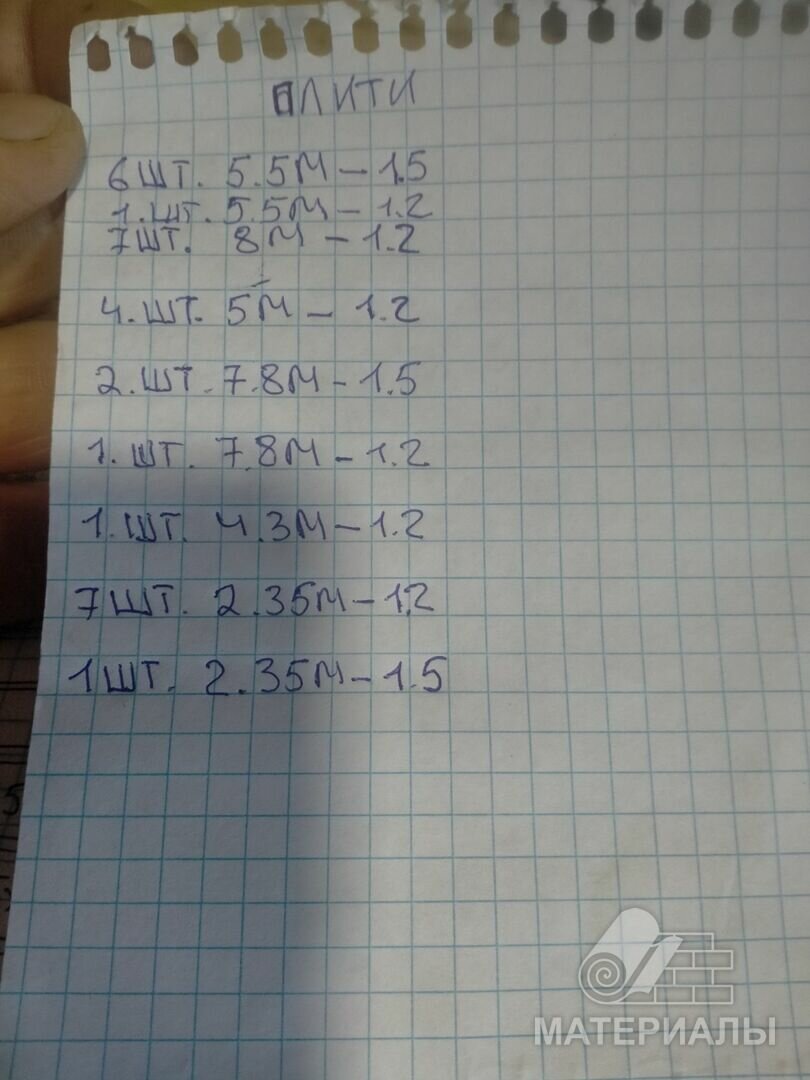 ПЛИТИ
6 ШТ. 5.5М - 1.5
1. ШТ. 5.5М - 1.2
7 ШТ. 8М - 1.2
4. ШТ. 5М - 1.2
2. ШТ. 7.8М - 1.5
1. ШТ. 7.8М - 1.2
1. ШТ. 4.3М - 1.2
7 ШТ. 2.35М - 1.2
1 ШТ. 2.35М - 1.5
МАТЕРИАЛЫ